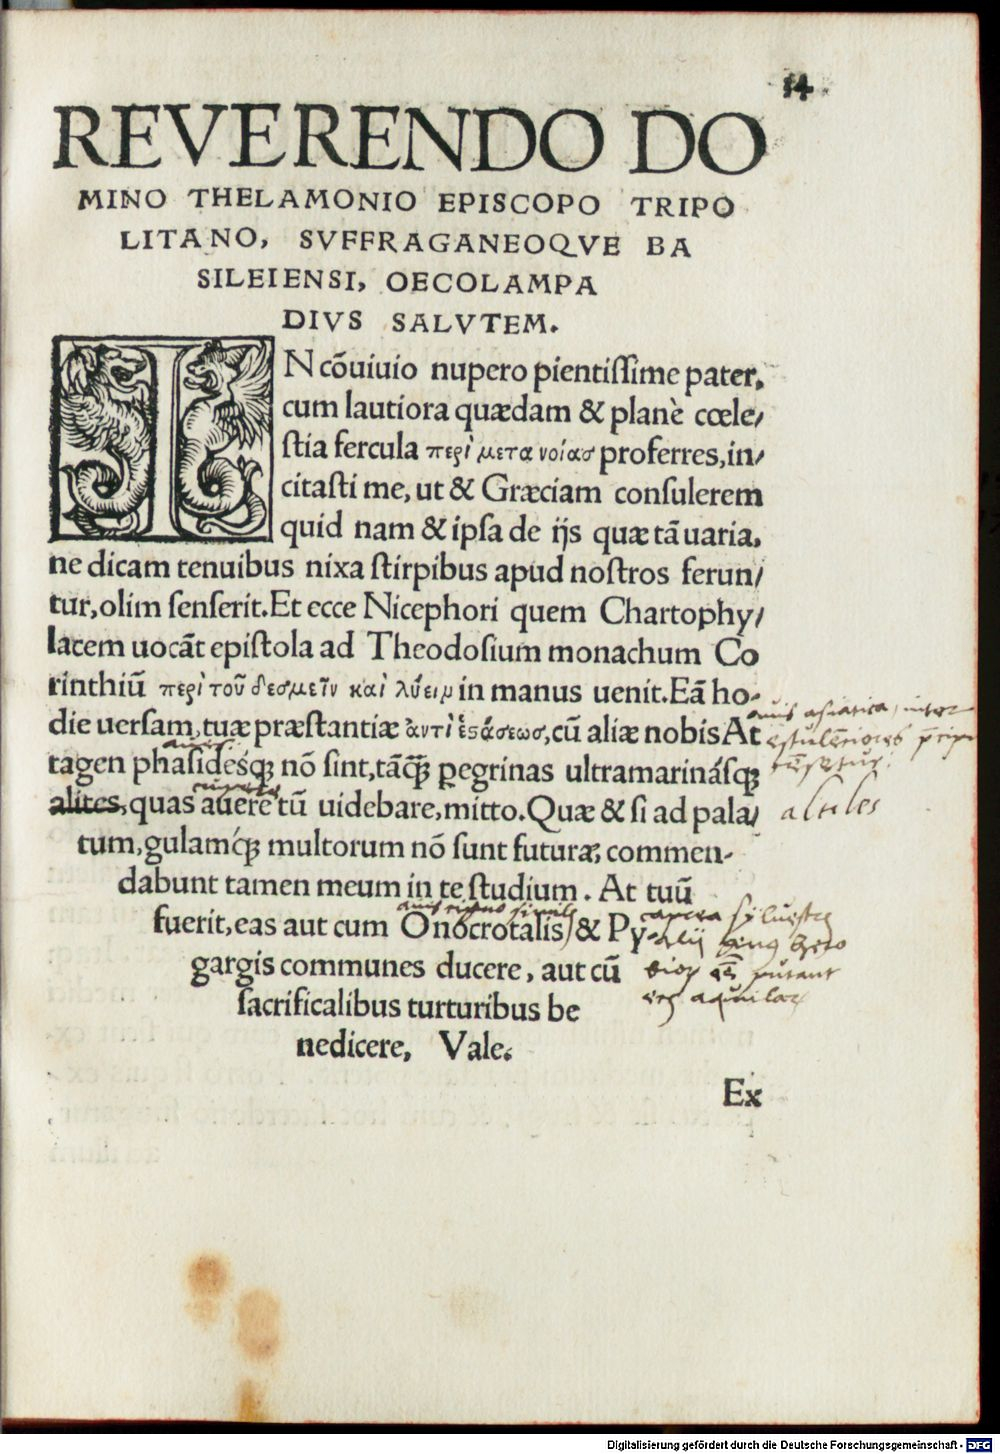 14
REVERENDO DO
MINO THELAMONIO EPISCOPO TRIPO
LITANO, SVFFRAGANEOQVE BA
SILEIENSI, OECOLAMPA
DIVS SALVTEM.
IN cōuiuio nupero pientiſſime pater,
cum lautiora quædam & planè cœle/
ſtia fercula περὶ μετανοίασ proferres, in/
citaſti me, ut & Græciam conſulerem
quid nam & ipſa de ijs quæ tā uaria,
ne dicam tenuibus nixa ſtirpibus apud noſtros ferun/
tur, olim ſenſerit. Et ecce Nicephori quem Chartophy/
lacem uocāt epiſtola ad Theodoſium monachum Co
rinthiū περὶ τοῦ δεσμεῖν καὶ λύειν in manus uenit. Eā ho-
die uerſam, tuæ præſtantiæ ἀντὶ ἑστιάσεωσ, cū aliæ nobis At
auis asiatica, inter
tagen phaſidesq́ꝫ nō ſint, tāq̄ꝫ ꝑegrinas ultramarinásqꝫ
aues
alites, quas auere tū uidebare, mitto. Quæ & ſi ad pala/
altiles
tum, gulamq́ꝫ multorum nō ſunt futuræ, commen-
dabunt tamen meum in te ſtudium. At tuū
auis cigno similis
fuerit, eas aut cum Onocrotalis, & Py-
caprea sylvestris
gargis communes ducere, aut cū
putant
ſacrificalibus turturibus be
aquilar
nedicere, Vale.
Ex
Digitalisierung gefördert durch die Deutsche Forschungsgemeinschaft - DFG